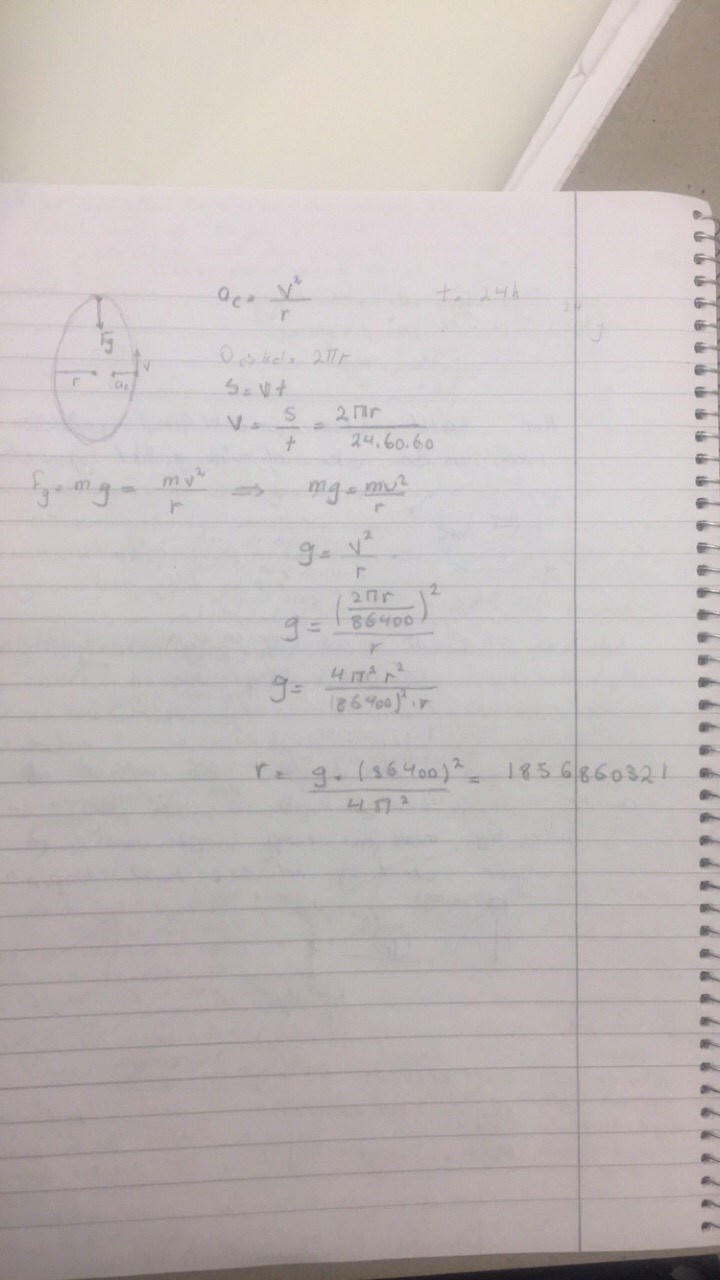 a_c = v²/r t = 24h
F_g
v
r a_c
2πr
S = vt
v = s/t = 2πr/24.60.60
F_g = mg = mv²/r ⟹ mg = mv²/r
g = v²/r
g = (2πr/86400)²/r
g = 4π²r²/(86400)².r
r = g.(86400)²/4π² = 1856860321